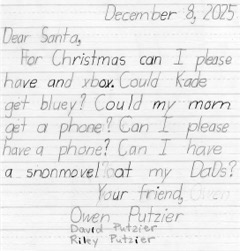 December 8, 2025
Dear Santa,
For Christmas can I please
have and xbox. Could Kade
get bluey? Could my mom
get a phone? Can I please
have a phone? Can I have
a snonmovel at my DaDs?
Your friend, Owen
Owen Putzier
David Putzier
Riley Putzier